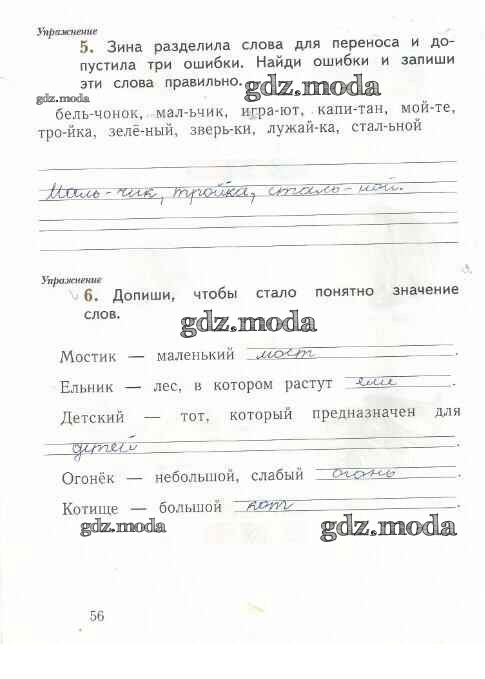 Упражнение
5. Зина разделила слова для переноса и до-
пустила три ошибки. Найди ошибки и запиши
эти слова правильно.
gdz.moda
gdz.moda
бель-чонок, мал-ьчик, игра-ют, капи-тан, мой-те,
тро-йка, зелё-ный, зверь-ки, лужай-ка, стал-ьной
Маль-чик, тройка, сталь-ной.
Упражнение
6. Допиши, чтобы стало понятно значение
слов.
gdz.moda
Мостик — маленький мост.
Ельник — лес, в котором растут ели.
Детский — тот, который предназначен для
детей.
Огонёк — небольшой, слабый огонь.
Котище — большой кот.
gdz.moda
gdz.moda
56